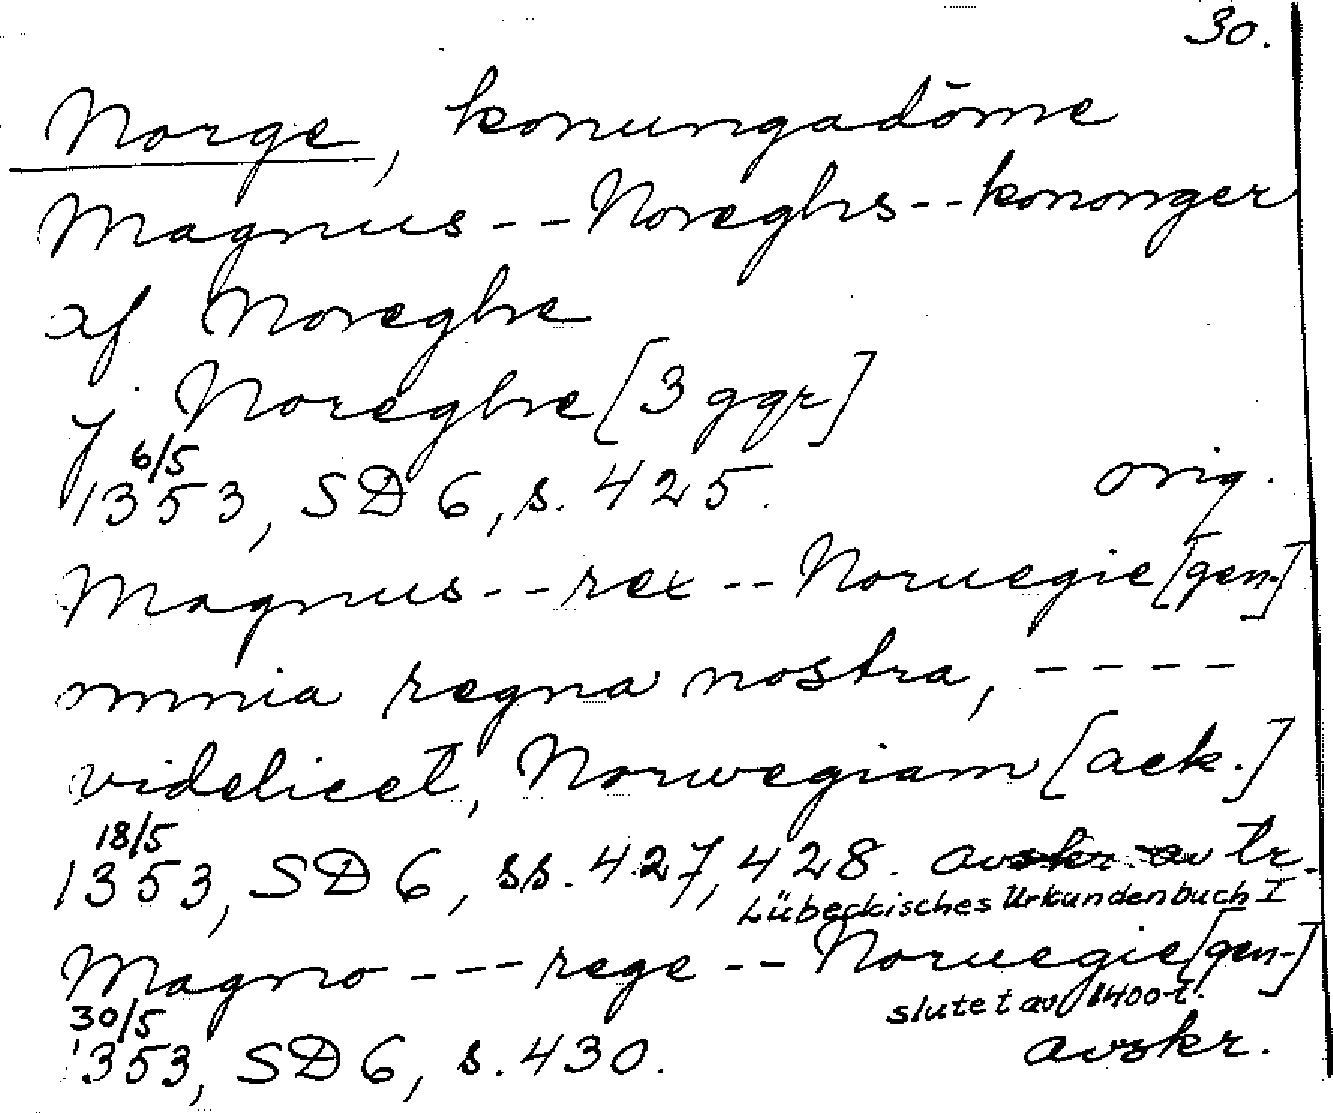 30.
Norge, konungadöme
Magnus -- Noreghs -- kononger
af Noreghe
j Noreghe [3 ggr]
6/5
1353, SD 6, s. 425. orig.
Magnus -- rex -- Noruegie [gen.]
omnia regna nostra, ----
videlicet, Norwegiam [ack.]
18/5
1353, SD 6, ss. 427, 428. avskr. av tr.
Lübeckisches Urkundenbuch I
Magno --- rege -- Noruegie [gen.]
30/5 slutet av 1400-t.
1353, SD 6, s. 430. avskr.